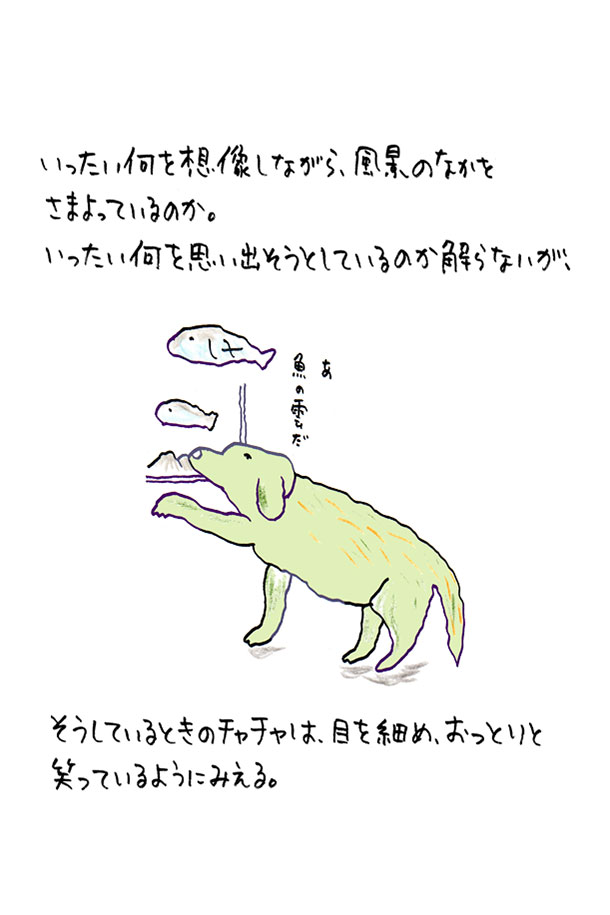 いったい何を想像しながら、風景のなかを
さまよっているのか。
いったい何を思い出そうとしているのか解らないが、
あ
魚の雲だ
そうしているときのチャチャは、目を細め、おっとりと
笑っているようにみえる。